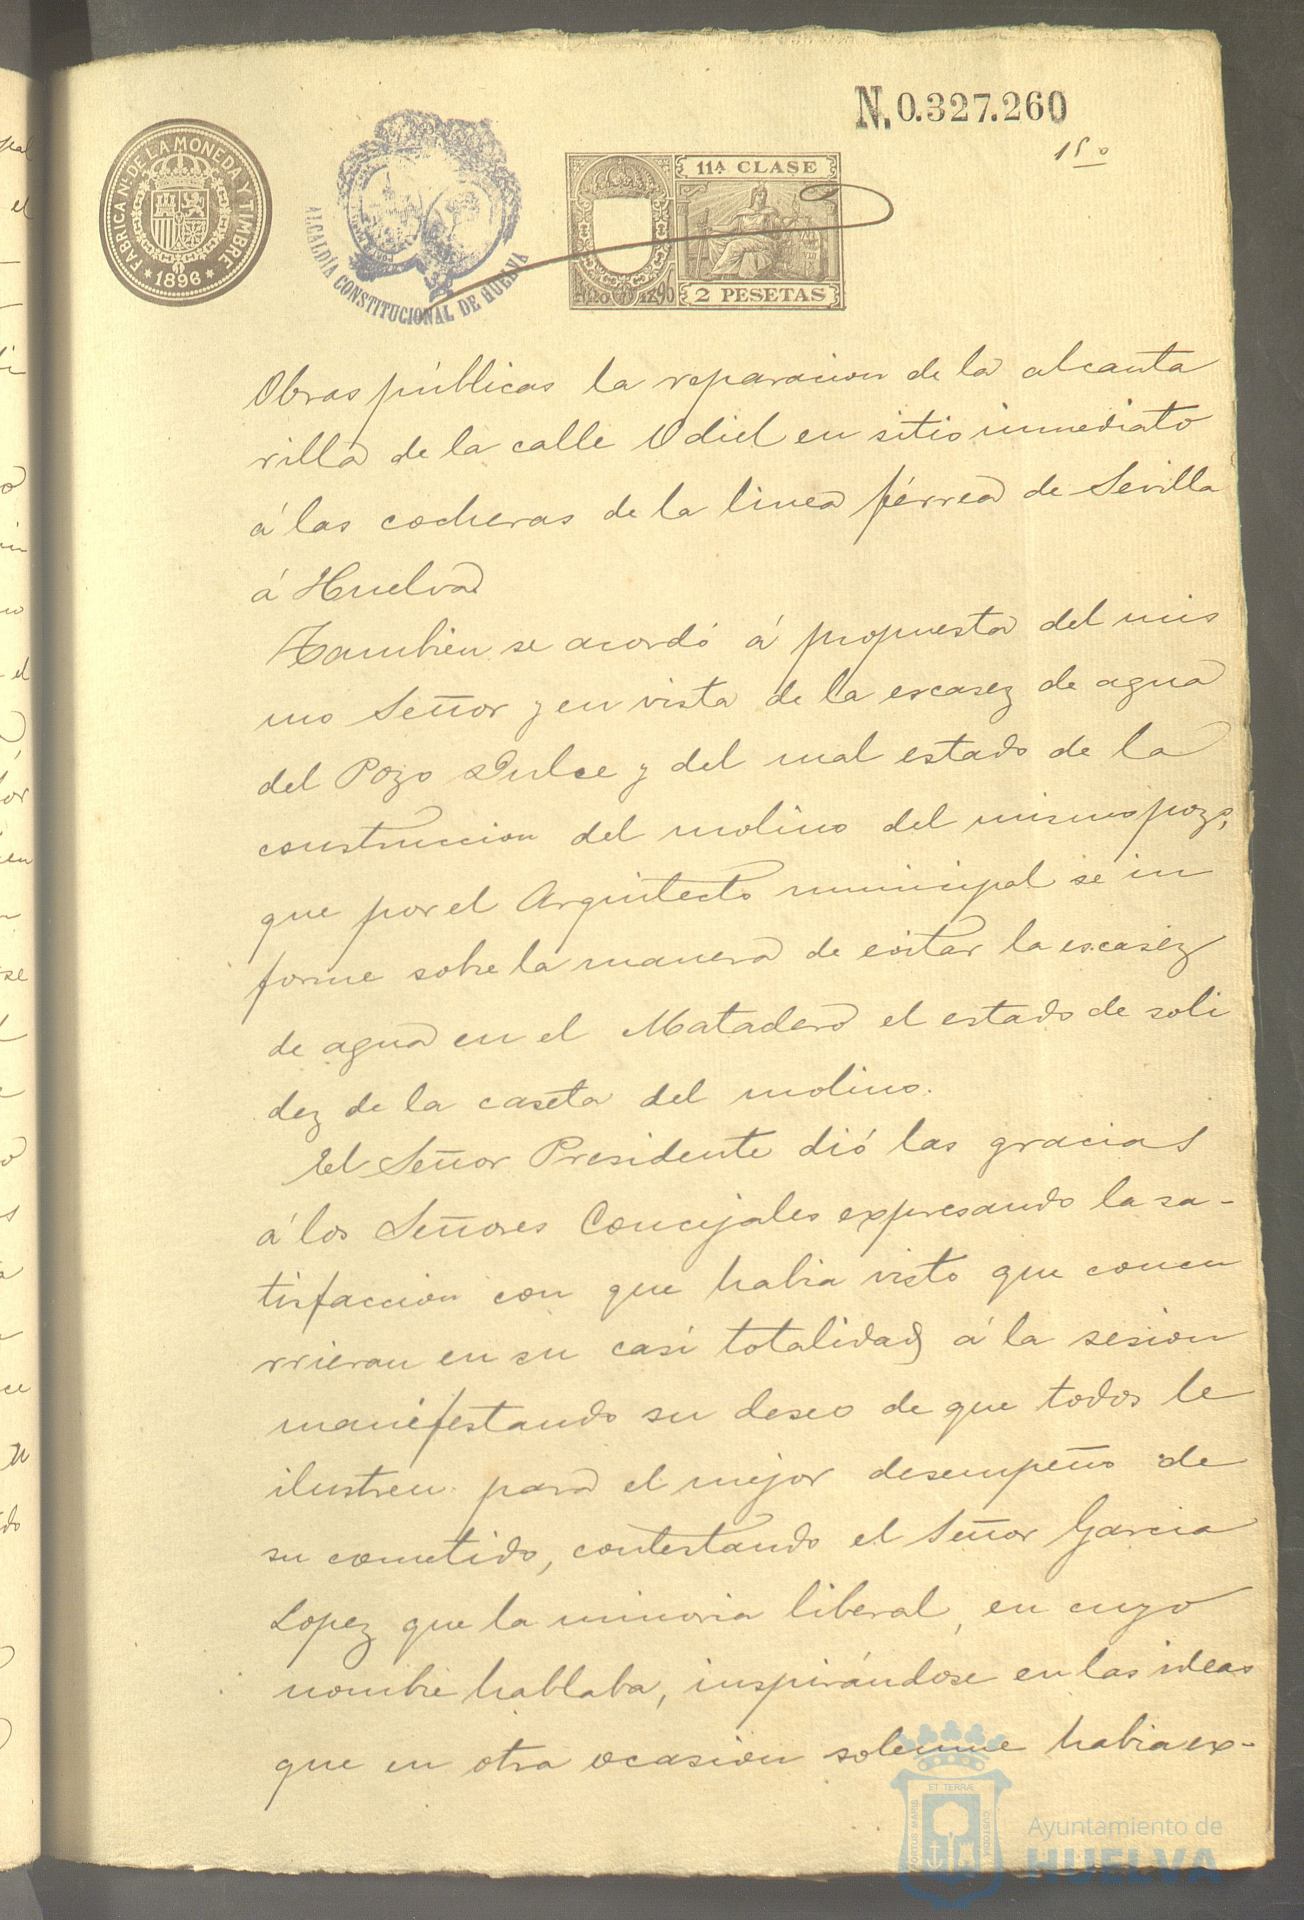 N. 0.327.260
FABRICA Nl. DE LA MONEDA Y TIMBRE
* 1896 *
ALCALDÍA CONSTITUCIONAL DE HUELVA
11ª CLASE
2 PESETAS
Obras públicas la reparacion de la alcanta
rilla de la calle Odiel en sitio inmediato
á las cocheras de la linea férrea de Sevilla
á Huelva
Tambien se acordó á propuesta del mis
mo Señor y en vista de la escasez de agua
del Pozo Dulce y del mal estado de la
construccion del molino del mismo pozo,
que por el Arquitecto municipal se in
forme sobre la manera de evitar la escaséz
de agua en el Matadero el estado de soli
dez de la caseta del molino.
El Señor Presidente dió las gracias
á los Señores Concejales expresando la sa-
tisfaccion con que habia visto que concu
rrieran en su casi totalidad á la sesion
manifestando su deseo de que todos le
ilustren para el mejor desempeño de
su cometido, contestando el Señor Garcia
Lopez que la minoria liberal, en cuyo
nombre hablaba, inspirándose en las ideas
que en otra ocasion solemne habia ex-
PORTUS MARIS ET TERRÆ CUSTODIA
Ayuntamiento de
HUELVA